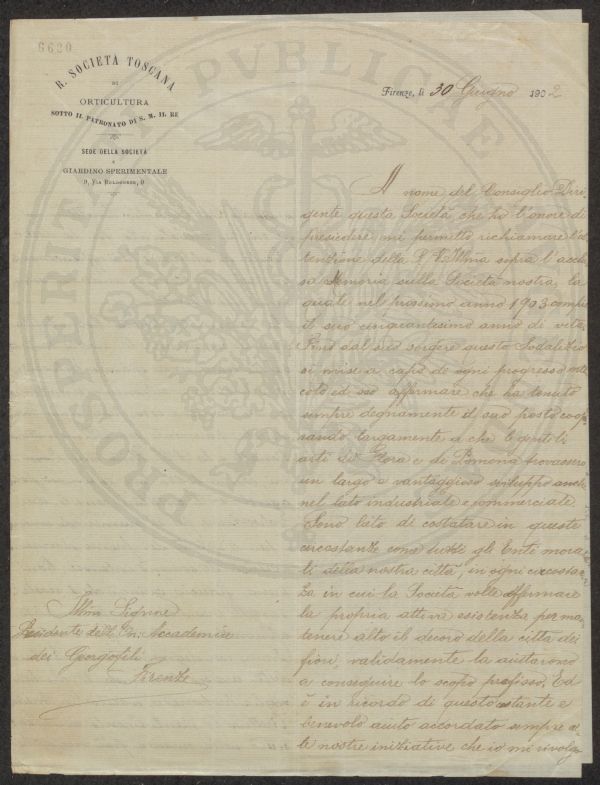 6620
R. SOCIETÀ TOSCANA
DI
ORTICULTURA
SOTTO IL PATRONATO DI S. M. IL RE
SEDE DELLA SOCIETÀ
E
GIARDINO SPERIMENTALE
9, Via Bolognese, 9
Firenze, li 30 Giugno 1902
A nome del Consiglio Diri-
gente questa Società che ho l'onore di
presiedere, mi permetto richiamare l'at
tenzione della S. V. Illma sopra l'acclu
sa Memoria sulla Società nostra, la
quale nel prossimo anno 1903 compie
il suo cinquantesimo anno di vita.
Fino dal suo sorgere questo Sodalizio
si mise a capo di ogni progresso orti
colo ed oso affermare che ha tenuto
sempre degnamente il suo posto coope
rando largamente a che le gentili
arti di Flora e di Pomona trovassero
un largo e vantaggioso sviluppo anche
nel lato industriale e commerciale
Sono lieto di costatare in queste
circostanze come tutti gli Enti mora
li della nostra città, in ogni circostan
za in cui la Società volle affermare
la propria attiva esistenza per man
tenere alto il decoro della città dei
fiori, validamente la aiutarono
a conseguire lo scopo prefisso. Ed
è in ricordo di questo costante e
benevolo aiuto accordato sempre al
le nostre iniziative che io mi rivolgo
Illmo Signore
Presidente dell'On. Accademia
dei Georgofili
Firenze
PROSPERITATI PVBLICAE